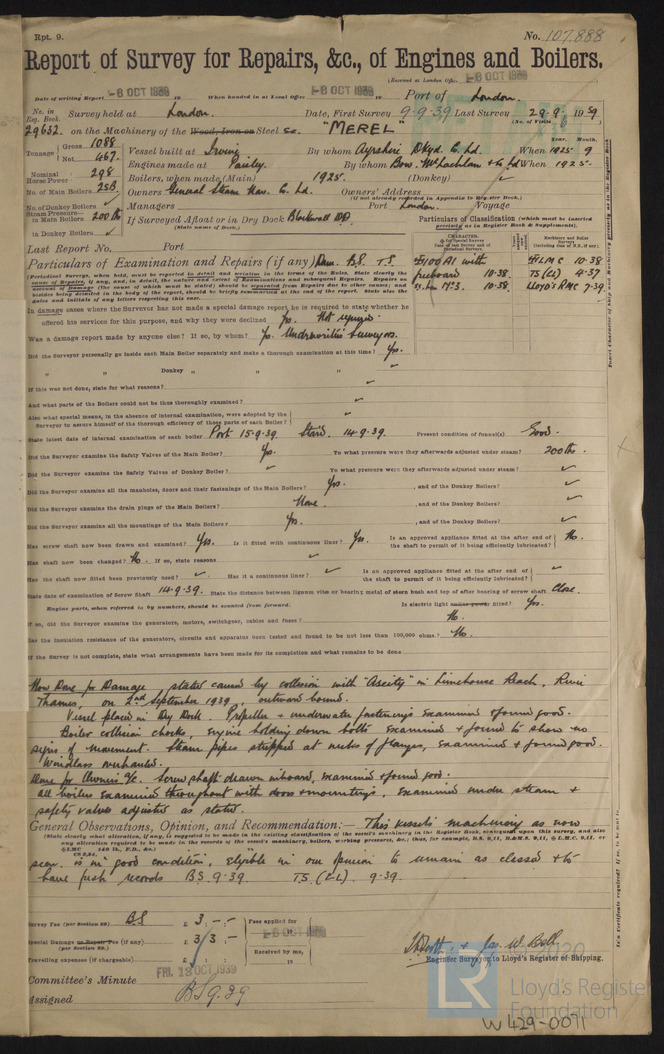 Rpt. 9.
No. 107.888
Report of Survey for Repairs, &c., of Engines and Boilers.
(Received at London Office -6 OCT 1939
Date of writing Report -6 OCT 1939 19 When handed in at Local Office -6 OCT 1939 19 Port of London.
No. in Reg. Book. Survey held at London. Date, First Survey 9-9-39 Last Survey 29-9- 1939
(No. of Visits 6)
29632. on the Machinery of the Wood, Iron or Steel sc. "MEREL"
Tonnage Gross 1088 Net 467. Vessel built at Irvine By whom Ayrshire Dkyd. C. Ld. When 1925 9
Year. Month.
Nominal Horse Power 298 Engines made at Paisley. By whom Bow. McLachlan & C Ld When 1925-
No. of Main Boilers 2SB. Boilers, when made (Main) 1925. (Donkey) ✓
No. of Donkey Boilers ✓ Owners General Steam Nav. C. Ld. Owners' Address
(if not already recorded in Appendix to Register Book.)
Steam Pressure— in Main Boilers 200 lb Managers Port London. Voyage
in Donkey Boilers ✓ If Surveyed Afloat or in Dry Dock Blackwall DD.
(State name of Dock.)
Particulars of Classification (which must be inserted precisely as in Register Book & Supplements).
Last Report No. Port
Particulars of Examination and Repairs (if any) Dam. B.S. T.S
✠100A1 with freeboard 10.38.
ss. No. 3. 10.38.
✠LMC 10.38
TS (CL) 4.37
Lloyd's RMC 7.39
In damage cases where the Surveyor has not made a special damage report he is required to state whether he
offered his services for this purpose, and why they were declined Yes. Not required.
Was a damage report made by anyone else? If so, by whom? Yes. Underwriters Surveyors.
Did the Surveyor personally go inside each Main Boiler separately and make a thorough examination at this time? Yes.
" " Donkey " " " ✓
If this was not done, state for what reasons? ✓
And what parts of the Boilers could not be thus thoroughly examined? ✓
Also what special means, in the absence of internal examination, were adopted by the
Surveyor to assure himself of the thorough efficiency of those parts of each Boiler? ✓
State latest date of internal examination of each boiler Port 15.9.39. Starb. 14.9.39. Present condition of funnel(s) Good.
Did the Surveyor examine the Safety Valves of the Main Boiler? Yes. To what pressure were they afterwards adjusted under steam? 200 lbs.
Did the Surveyor examine the Safety Valves of Donkey Boiler? ✓ To what pressure were they afterwards adjusted under steam? ✓
Did the Surveyor examine all the manholes, doors and their fastenings of the Main Boilers? Yes. , and of the Donkey Boilers? ✓
Did the Surveyor examine the drain plugs of the Main Boilers? None. , and of the Donkey Boilers? ✓
Did the Surveyor examine all the mountings of the Main Boilers? Yes. , and of the Donkey Boilers? ✓
Has screw shaft now been drawn and examined? Yes. Is it fitted with continuous liner? Yes. Is an approved appliance fitted at the after end of the shaft to permit of it being efficiently lubricated? No.
Has shaft now been changed? No. If so, state reasons ✓
Has the shaft now fitted been previously used? ✓ Has it a continuous liner? ✓ Is an approved appliance fitted at the after end of the shaft to permit of it being efficiently lubricated? ✓
State date of examination of Screw Shaft 14-9-39. State the distance between lignum vitæ or bearing metal of stern bush and top of after bearing of screw shaft Close.
Engine parts, when referred to by numbers, should be counted from forward. Is electric light fitted? Yes.
If so, did the Surveyor examine the generators, motors, switchgear, cables and fuses? No.
Has the insulation resistance of the generators, circuits and apparatus been tested and found to be not less than 100,000 ohms? No.
If the Survey is not complete, state what arrangements have been made for its completion and what remains to be done
Now Done for Damage stated caused by collision with "Ascity" in Limehouse Reach, River
Thames, on 2nd September 1939, outward bound.
Vessel placed in Dry Dock. Propeller & underwater fastenings examined & found good.
Boiler collision chocks, engine holding down bolts examined & found to show no
signs of movement. Steam pipes stripped at necks of flanges, examined & found good.
Windlass overhauled.
Done for Owners a/c. Screwshaft drawn inboard, examined & found good.
All boilers examined throughout with doors & mountings, examined under steam &
safety valves adjusted as stated.
General Observations, Opinion, and Recommendation:— This vessels machinery as now
seen is in good condition, eligible in our opinion to remain as classed & to
have fresh records BS 9.39. T.S. (CL) 9.39.
Survey Fee (per Section 29) BS £ 3 : - : - Fees applied for -6 OCT 1939 19
Special Damage or Repair Fee (if any) (per Section 29.) £ 3/3 : - Received by me,
Travelling expenses (if chargeable) £ : : 19
Jas. W. Bell
Engineer Surveyor to Lloyd's Register of Shipping.
Committee's Minute FRI. 13 OCT 1939
Assigned BS 9.39
© 2020
LR
Lloyd's Register
Foundation
W429-0071